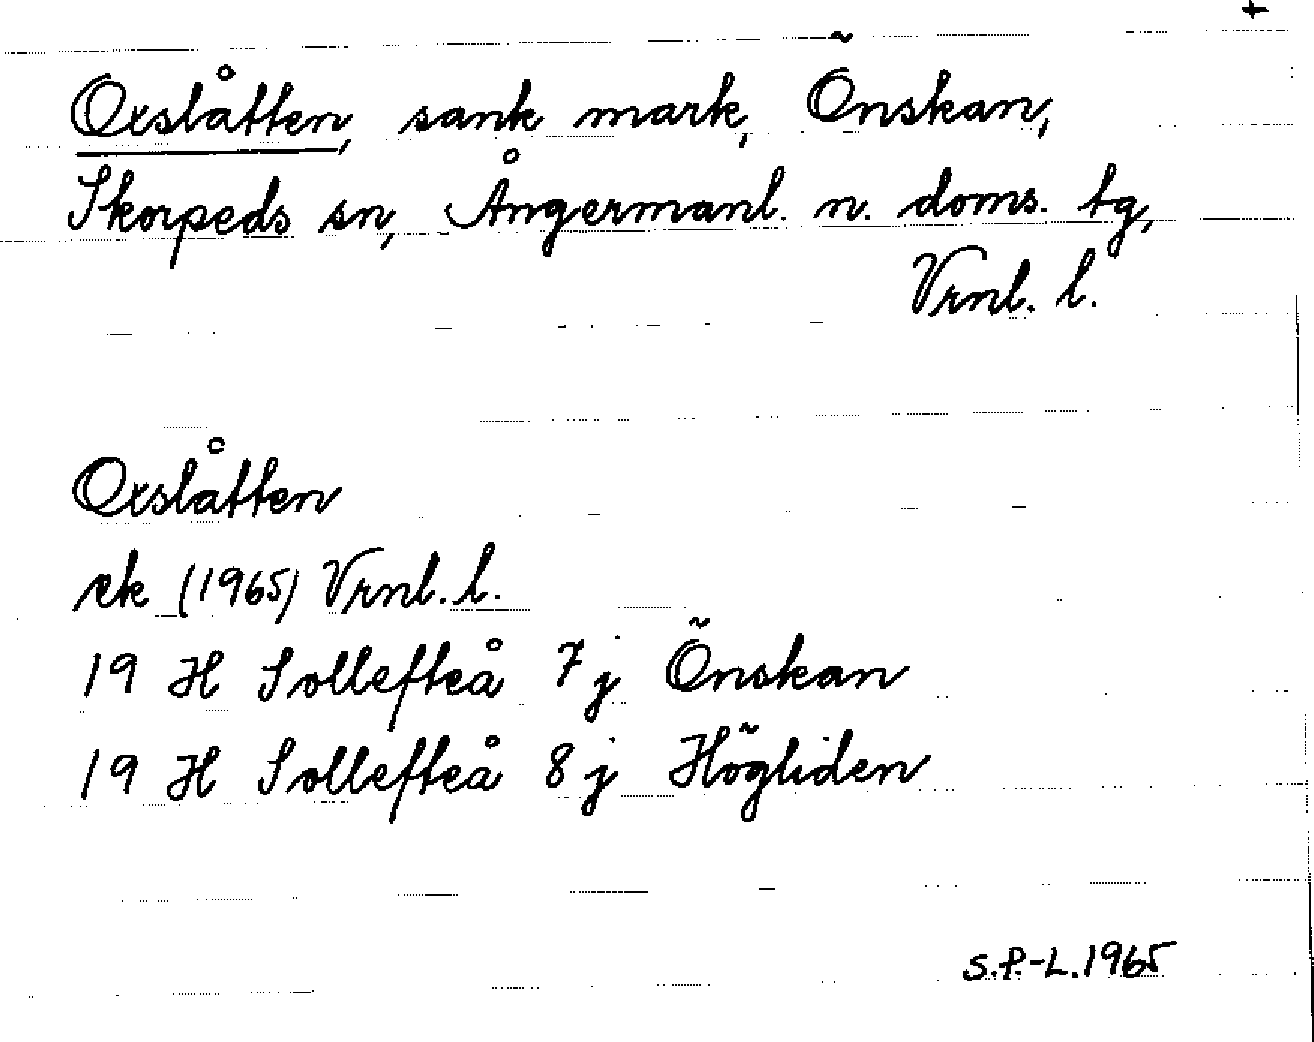 +
Oxslåtten, sank mark, Önskan,
Skorpeds sn, Ångermanl. n. doms. tg,
Vrnl. l.
Oxslåtten
ek (1965) Vrnl. l.
19 H Sollefteå 7j Önskan
19 H Sollefteå 8j Högliden
S.P-L.1965